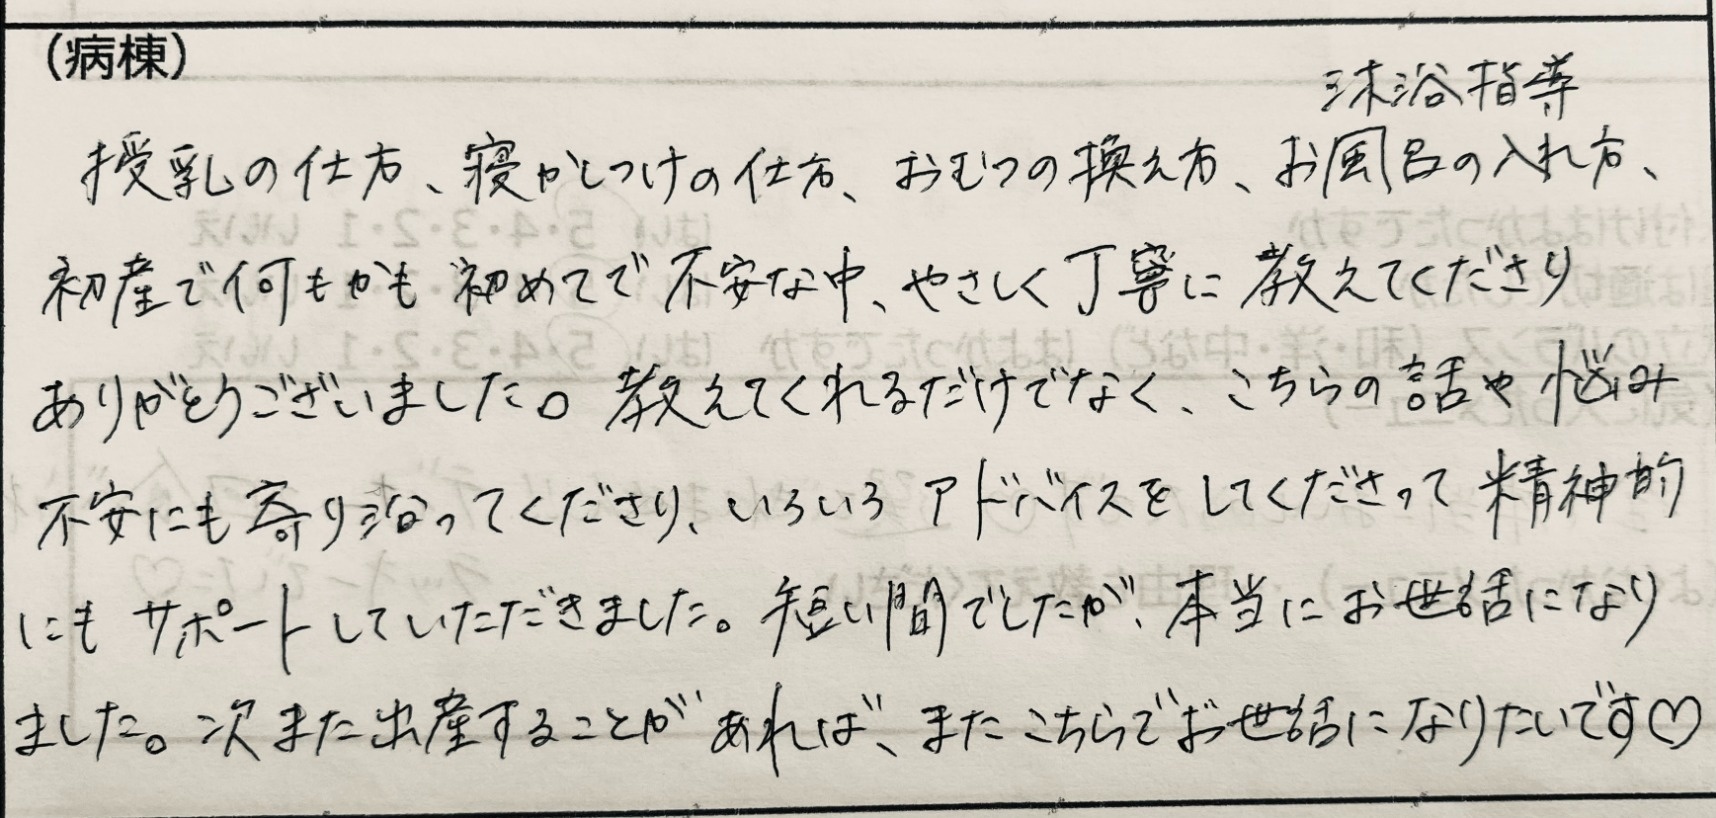 (病棟)
沐浴指導
授乳の仕方、寝かしつけの仕方、おむつの換え方、お風呂の入れ方、
初産で何もかも初めてで不安な中、やさしく丁寧に教えてくださり
ありがとうございました。教えてくれるだけでなく、こちらの話や悩み
不安にも寄り沿ってくださり、いろいろアドバイスをしてくださって精神的
にもサポートしていただきました。短い間でしたが、本当にお世話になり
ました。次また出産することがあれば、またこちらでお世話になりたいです♡